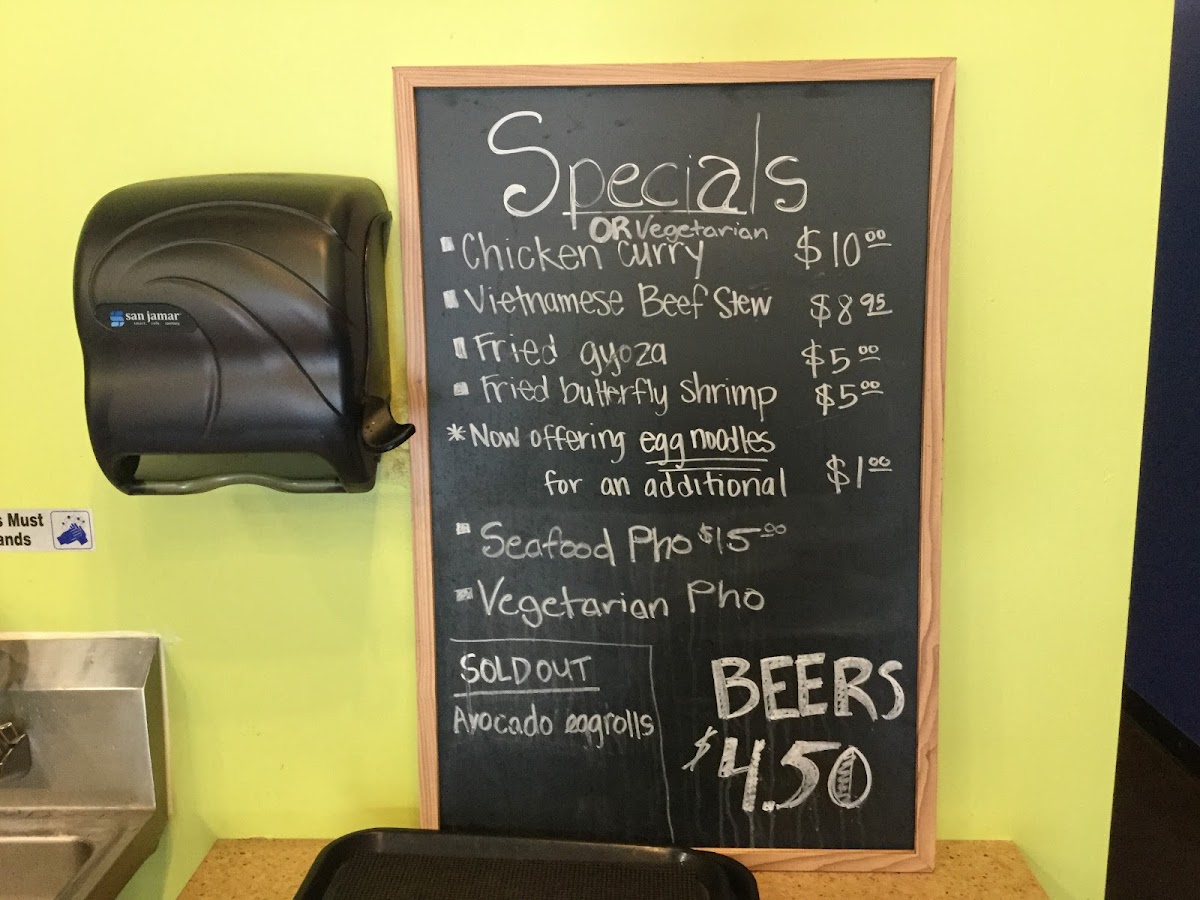 Specials
OR Vegetarian
Chicken Curry $10.00
Vietnamese Beef Stew $8.95
Fried gyoza $5.00
Fried butterfly Shrimp $5.00
*Now offering egg noodles
for an additional $1.00
Seafood Pho $15.00
Vegetarian Pho
SOLD OUT
Avocado eggrolls
BEERS
$4.50
san jamar
s Must
ands